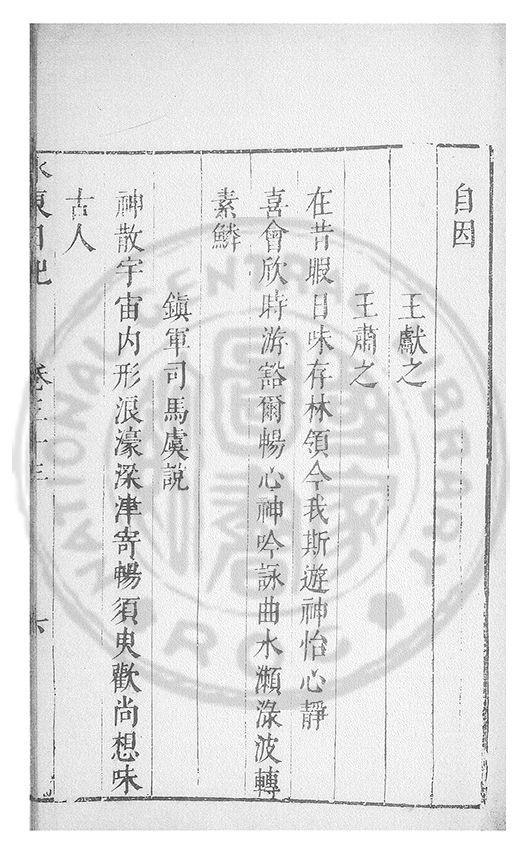 自因
王獻之
王肅之
在昔暇日味存林領今我斯遊神怡心靜
喜會欣時游豁爾暢心神吟詠曲水瀨淥波轉
素鱗
鎮軍司馬虞說
神散宇宙內形浪濠梁津寄暢須臾歡尚想味
古人
水東日記 卷三十三 六